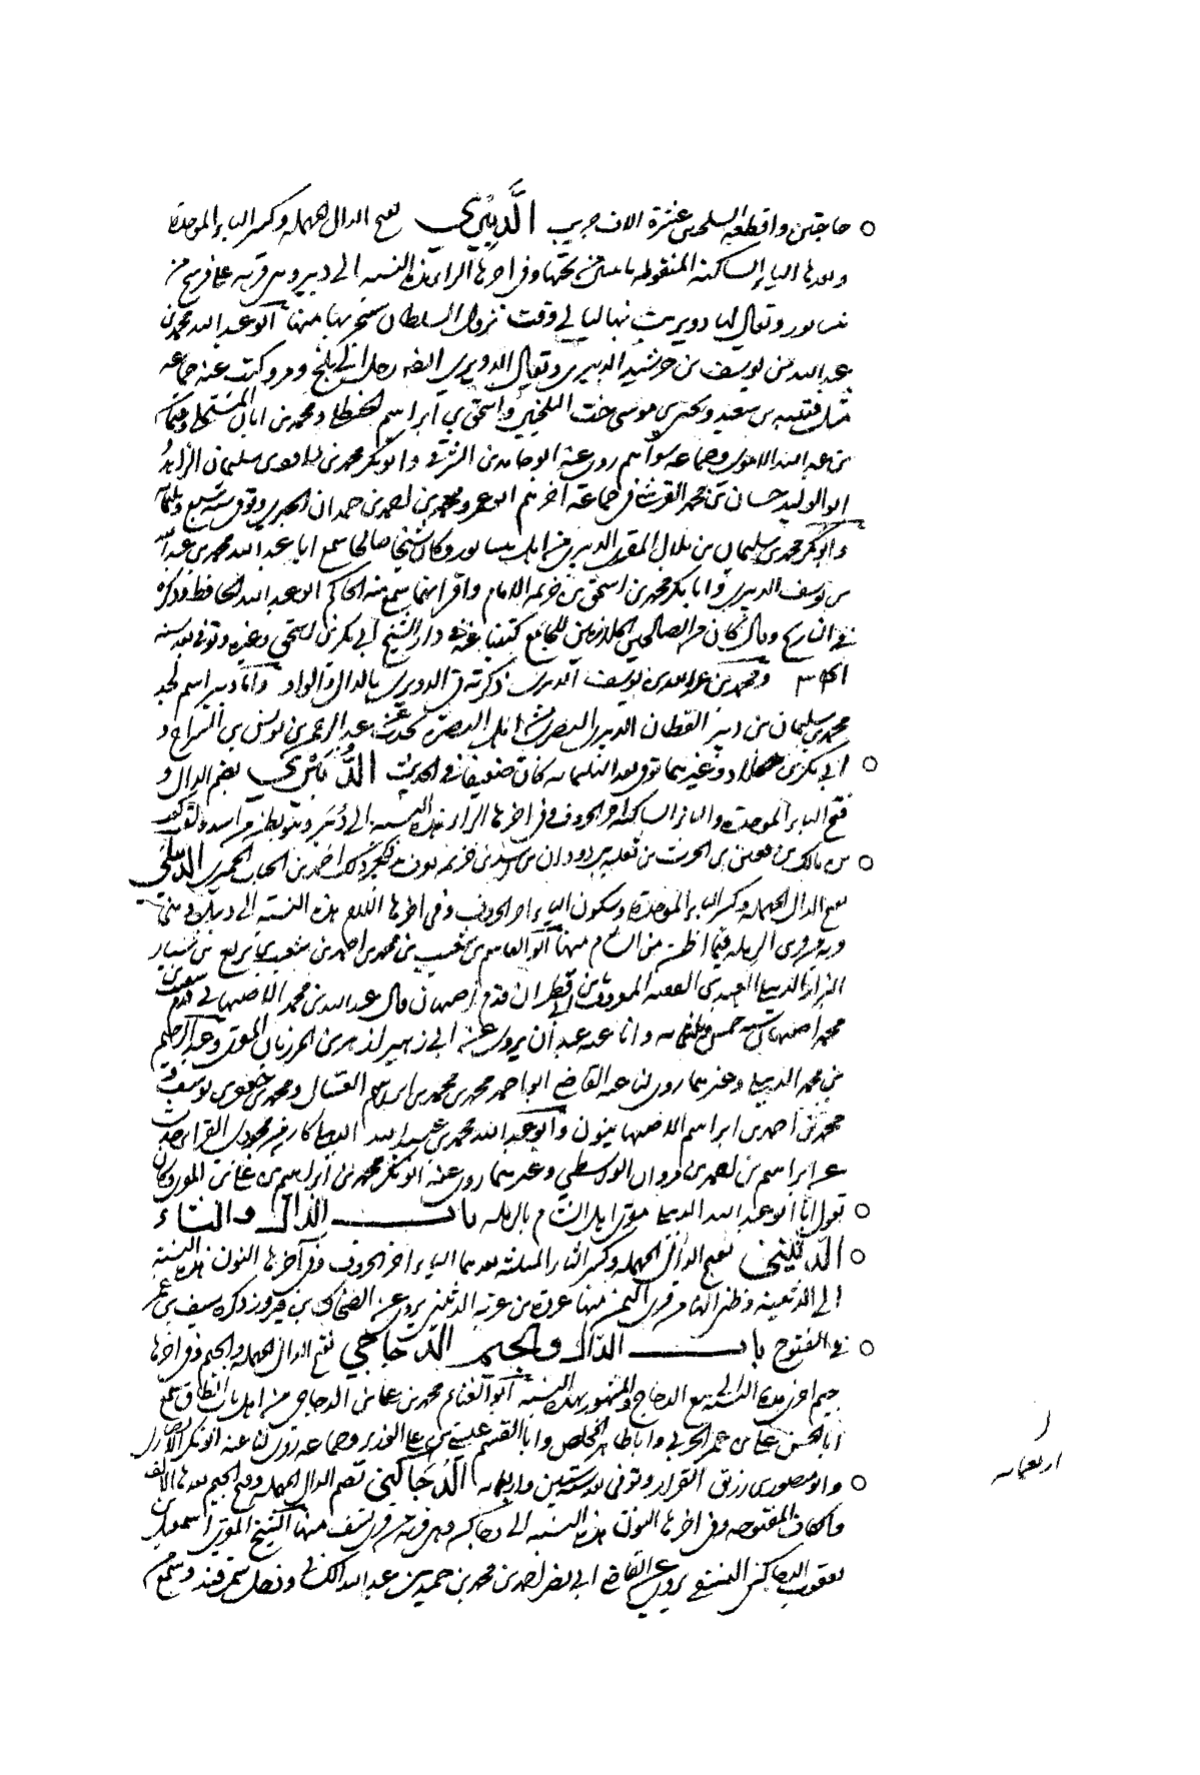 حاجتين واقطعه السلحين عشرة الاف جريب الدَّبِيري بفتح الدال المهملة وكسر الباء الموحدة
وبعدها الياء الساكنة المنقوطة باثنتين من تحتها وفي اخرها الراء هذه النسبة الى دبير وهي قرية على فرسخ من
نيسابور ويقال لها دوير بت بها ليالي وقت نزول السلطان سنجر بها منها ابو عبد الله محمد بن
عبد الله بن يوسف بن خرشيد الدبيري ويقال الدويري ايضا رحل الى بلخ ومرو وكتب عنه جماعة
مثل قتيبة بن سعيد ويحيى بن موسى خت البلخيين واسحق بن ابراهيم الحنظلي ومحمد بن ابان المستملي
بن عبد الله الاموي وجماعة سواهم روى عنه ابو حامد بن الشرقي وابو بكر محمد بن سليمان الزاهد
ابو الوليد حسان بن محمد القرشي في جماعة اخرهم ابو عمرو محمد بن احمد بن حمدان الحيري وتوفي سنة سبع وثلثمائة
وابو بكر محمد بن سليمان بن بلال المقري الدبيري من اهل نيسابور وكان شيخا صالحا سمع ابا عبد الله محمد بن عبد الله
بن يوسف الدبيري وابا بكر محمد بن اسحق بن خزيمة الامام واقرانهما سمع منه الحاكم ابو عبد الله الحافظ وذكره
في التاريخ وقال كان من الصالحين الملازمين للجامع كتبنا عنه في دار الشيخ ابي بكر بن اسحق وغيره وتوفي بعد سنة
ومحمد بن عبد الله بن يوسف الدبيري ذكرته في الدويري بالدال والواو واما دبير اسم لجد
محمد بن سليمان بن دبير القطان الدبيري البصري من اهل البصرة يحدث عن عبد الرحمن بن يونس بن السراج و
ابي بكر بن خلاد وغيرهما توفي بعد الثلثمائة كان ضعيفا في الحديث الدُّبَيْري بضم الدال و
فتح الباء الموحدة والياء الساكنة اخر الحروف وفي اخرها الراء هذه النسبة الى دُبَير وهو بطن من اسد
بن مالك بن الحرث بن ثعلبة بن دودان بن اسد بن خزيمة ذكر ذلك احمد بن الحباب الحميري الدَّبيلي
بفتح الدال المهملة وكسر الباء الموحدة وسكون الياء اخر الحروف وفي اخرها اللام هذه النسبة الى دبيل
وهي قرية من قرى الرملة فيما اظن من الشام منها ابو القاسم شعيب بن محمد بن احمد بن شعيب بن بزيع بن سنان
البزاز الدبيلي العبدي الفقيه المعروف بابن ابي قطران قدم اصبهان قال عبد الله بن محمد الاصبهاني قدم
محمد اصبهان سنة خمس وثلثمائة يروي عن ابي زهير ازهر بن المرزبان المقري وعبد الرحيم
بن محمد الدبيلي وغيرهما روى لنا عنه القاضي ابو احمد محمد بن محمد بن ابراهيم العسال ومحمد بن جعفر بن يوسف
محمد بن احمد بن ابراهيم الاصبهانيون وابو عبد الله محمد بن عبد الله الدبيلي
عن ابراهيم بن احمد بن مروان الواسطي وغيرهما روى عنه ابو بكر محمد بن ابراهيم بن علي بن المقري وكان
يقول انا ابو عبد الله الدبيلي مقري اهل الشام بالرملة باب الدال والثاء
الدَّثيني بفتح الدال المهملة وكسر الثاء المثلثة بعدها الياء اخر الحروف وفي آخرها النون هذه النسبة
الى الدثينة وظني انها من قرى اليمن منها عروة بن غزية الدثيني يروي عن الضحاك بن فيروز ذكره سيف بن عمر
في الفتوح باب الدال والجيم الدَّجاجي بفتح الدال المهملة والجيم وفي اخرها
جيم اخرى هذه النسبة الى بيع الدجاج والمشهور بهذه النسبة ابو الغنائم محمد بن علي بن الدجاجي من اهل باب الطاق سمع
ابا الحسن علي بن عمر الحربي وابا طاهر المخلص وابا القسم عيسى بن علي الوزير وجماعة روى لنا عنه ابو بكر الانصاري
وابو منصور بن زريق القزاز وتوفي بعد سنة ستين واربعمائة الدُّجَاكَني بضم الدال المهملة وفتح الجيم بعدها الالف
والكاف المفتوحة وفي اخرها النون هذه النسبة الى دجاكن وهي قرية من قرى نسف منها الشيخ المقري اسمعيل بن
يعقوب الدجاكني النسفي يروي عن القاضي ابي نصر احمد بن محمد بن حبيب بن عبد الله الكشاني ودخل سمرقند وسمع
اربعمائة